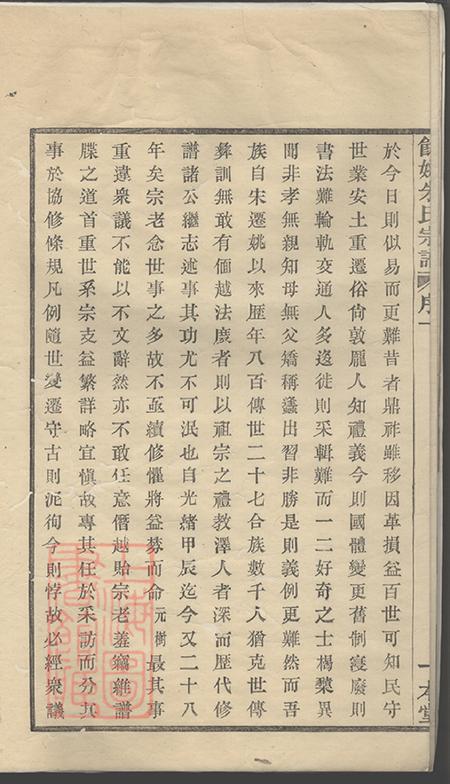 於今日則似易而更難昔者鼎祚雖移因革損益百世可知民守
世業安土重遷俗尙敦龐人知禮義今則國體變更舊制寖廢則
書法難輪軌交通人多遷徙則采輯難而一二好奇之士楬櫫異
聞非孝無親知母無父矯稱蠭出習非勝是則義例更難然而吾
族自宋遷姚以來歷年八百傳世二十七合族數千人猶克世傳
彝訓無敢有偭越法度者則以祖宗之禮教澤人者深而歷代修
譜諸公繼志述事其功尤不可泯也自光緒甲辰迄今又二十八
年矣宗老念世事之多故不亟續修懼將益棼而命元樹最其事
重違衆議不能以不文辭然亦不敢任意僭越貽宗老羞竊維譜
牒之道首重世系宗支益繁詳略宜愼故專其任於采訪而分其
事於協修條規凡例隨世變遷守古則泥徇今則悖故必經衆議
餘姚朱氏宗譜 序 一
一本堂